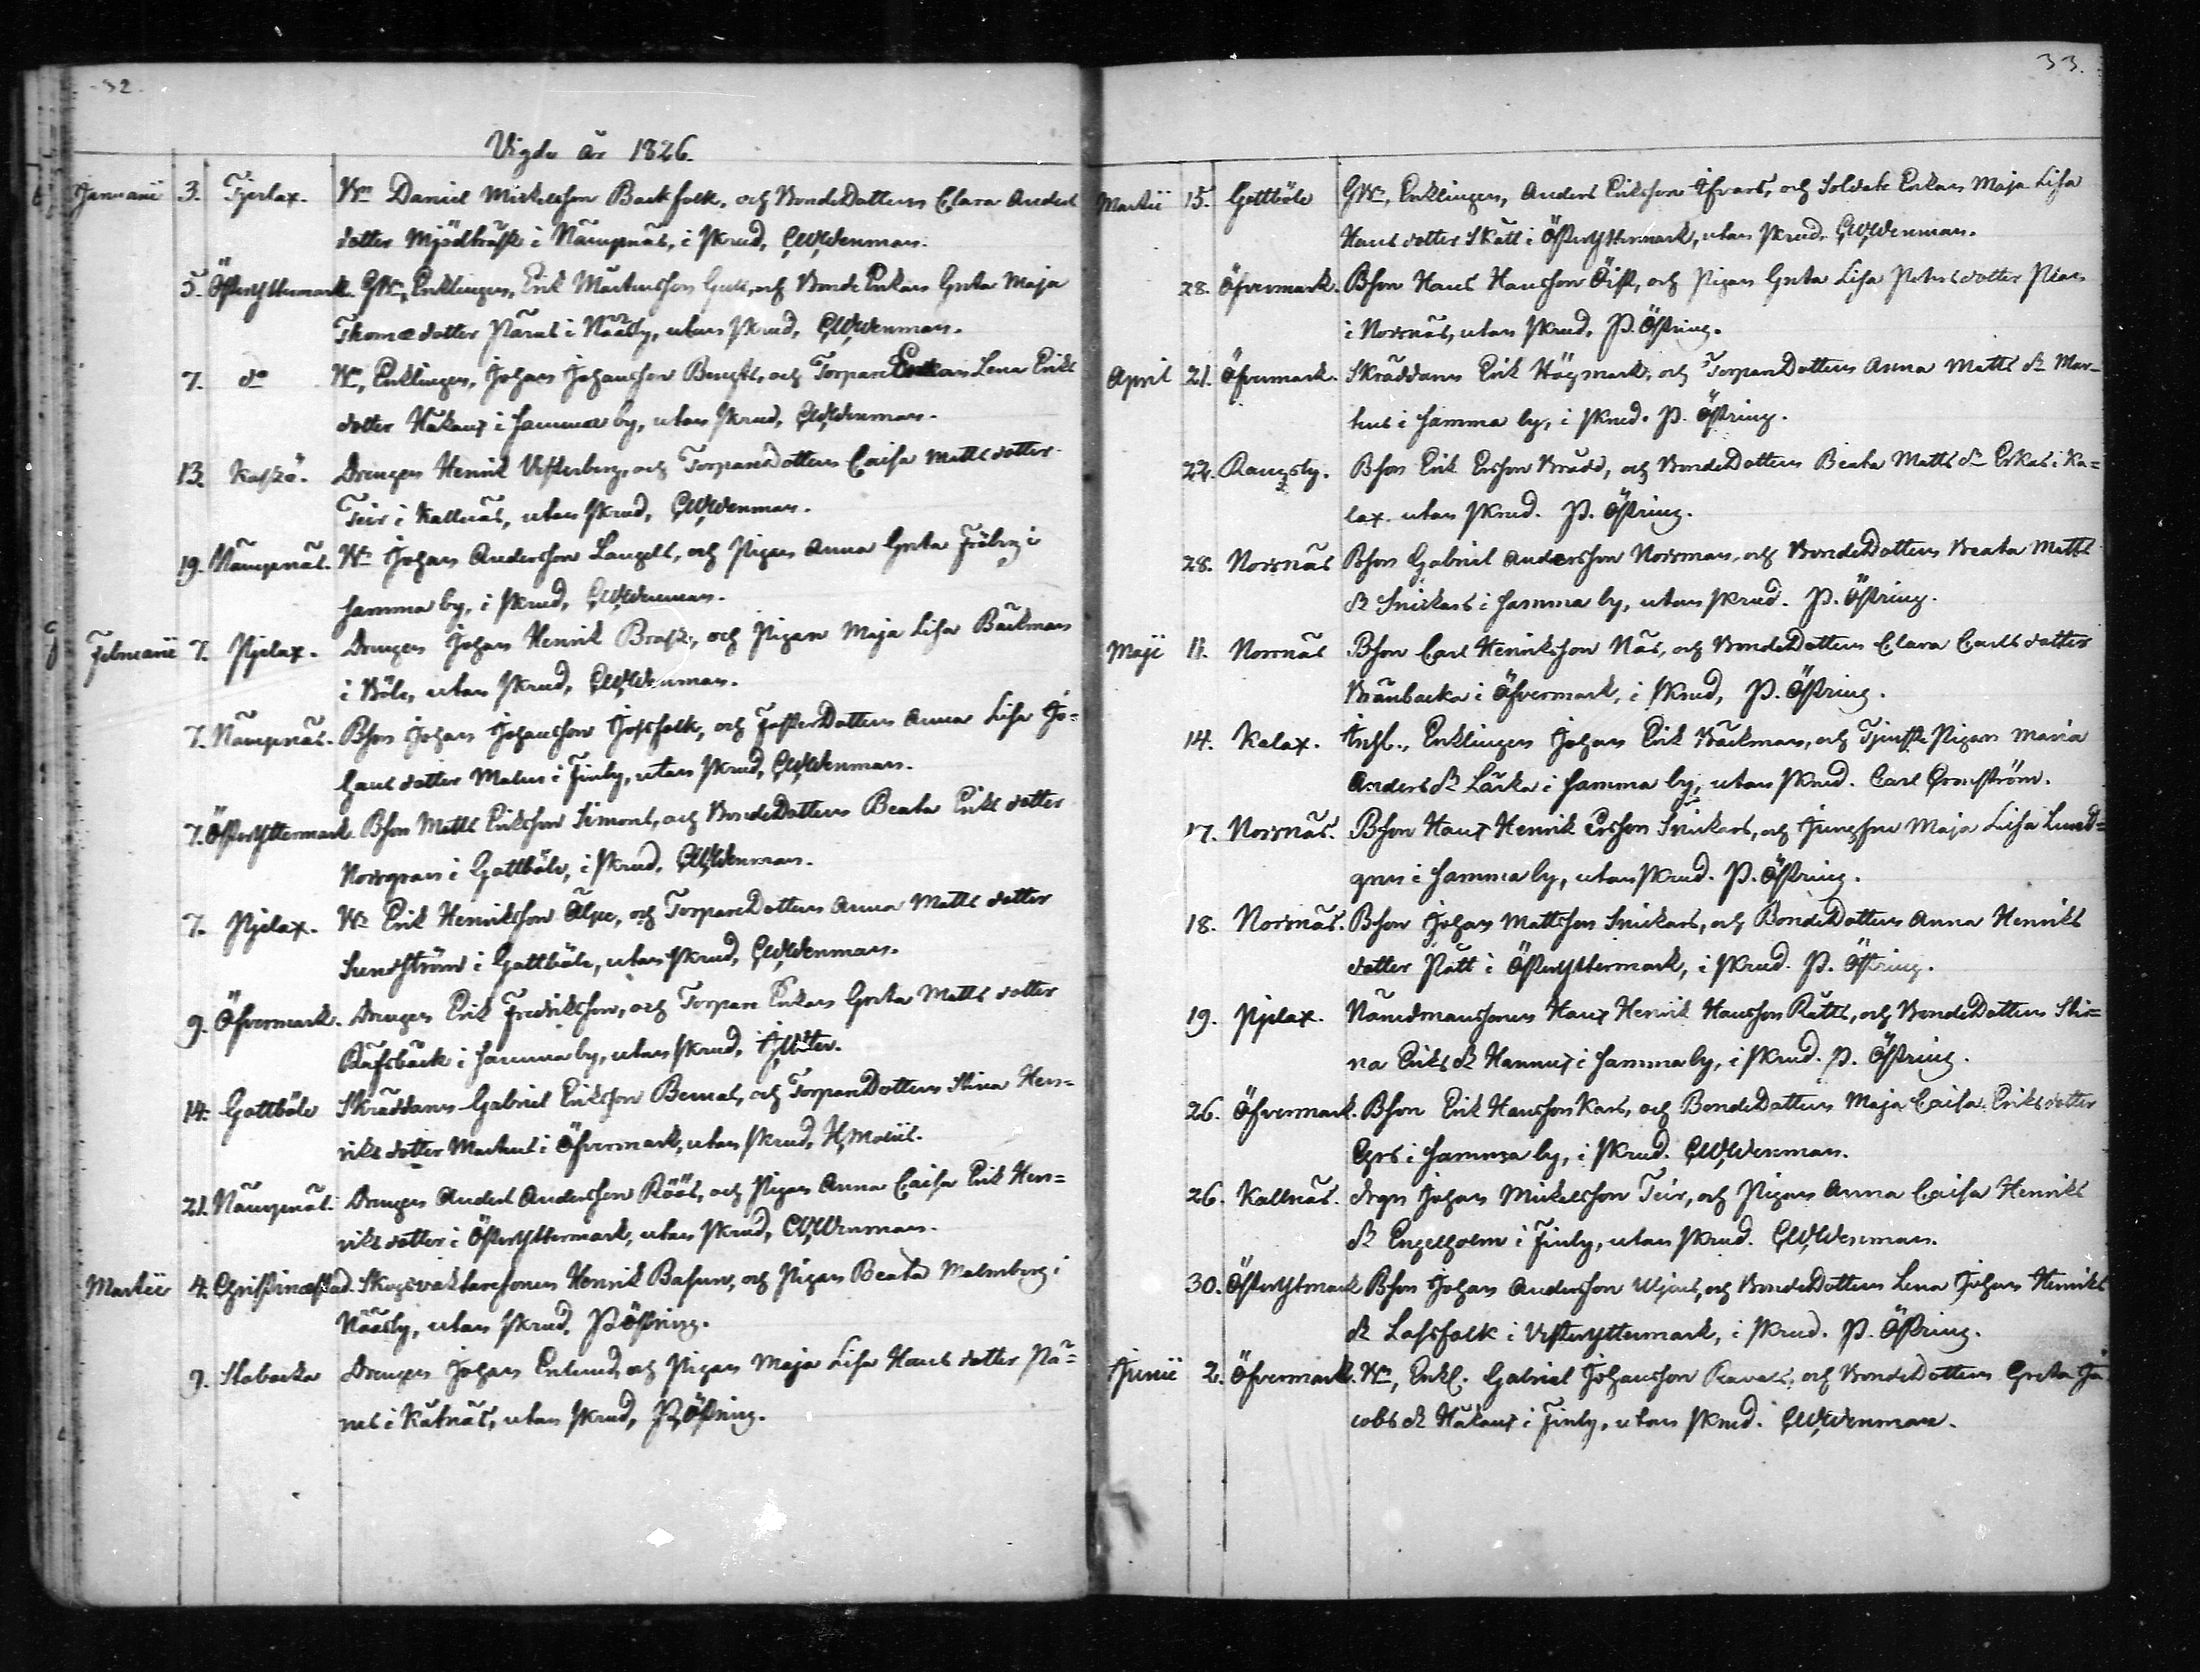 32.
Vigde år 1826.
Januarii 3. Tjerlax. Bn Daniel Mickelsson Backfolk, och BondeDottren Clara Anders
dotter Mjödträsk i Nämpnäs, i skrud, CWWenman.
5. Österyttermark. GBn, Enklingen, Erik Mårtensson Gull, och BondeEnkan Greta Maja
Thomædotter Pärus i Nääsby, utan skrud, CWWenman.
7. do Bn, Enklingen, Johan Johansson Bengts, och TorpareEnkan Lena Eriks
dotter Håkans i samma by, utan skrud, CWWenman.
13. Kaskö. Drengen Henrik Vesterberg, och TorpareDottren Caisa Mattsdotter
Teir i Kallnäs, utan skrud, CWWenman.
19. Nämpnäs. Bn Johan Andersson Langell, och Pigan Anna Greta Fröberg i
samma by, i skrud, CWWenman.
Februarii 7. Pjelax. Drengen Johan Henrik Brask, och Pigan Maja Lisa Bäckman
i Böle, utan skrud, CWWenman.
7. Nämpnäs. Bson Johan Johansson Josfolk, och FosterDottren Anna Lisa Jo-
hansdotter Malm i Finby, utan skrud, CWWenman.
7. Österyttermark. Bson Matts Eriksson Simons, och BondeDottren Beata Eriksdotter
Norrgran i Gottböle, i skrud, CWWenman.
7. Pjelax. Bn Erik Henriksson Ålpe, och TorpareDottren Anna Mattsdotter
Sundström i Gottböle, utan skrud, CWWenman.
9. Öfvermark. Drengen Erik Fredriksson, och Torpare Enkan Greta Mattsdotter
Råfsbäck i samma by, utan skrud,
14. Gottböle Skräddaren Gabriel Eriksson Bernas, och TorpareDottren Stina Hen-
riksdotter Markus i Öfvermark, utan skrud, H. Moliis.
21. Nämpnäs. Drengen Anders Andersson Röös, och Pigan Anna Caisa Erik Hen-
riksdotter i Österyttermark, utan skrud, CWWenman.
Martii 4. Christinæstad. Skogsvaktaresonen Henrik Basun, och Pigan Beata Malmberg i
Nääsby, utan skrud, P. Östring.
9. Stobacka Drengen Johan Enlund, och Pigan Maja Lisa Hansdotter Pä-
rus i Kåtnäs, utan skrud, P. Östring.
33.
Martii 15. Gottböle GBn, Enklingen, Anders Eriksson Ifvars, och Soldate Enkan Maja Lisa
Hansdotter Skått i Österyttermark, utan skrud, CWWenman.
28. Öfvermark. Bson Hans Hansson Öist, och Pigan Greta Lisa Petersdotter Plars
i Norrnäs, utan skrud, P. Östring.
April 21. Öfvermark. Skräddaren Erik Högmark, och TorpareDottren Anna Matts dr Mar-
kus i samma by, i skrud. P. Östring.
22. Rangsby. Bson Erik Ersson Brudd, och BondeDottren Beata Matts dr Erkas i Ka-
lax. utan skrud. P. Östring.
28. Norrnäs Bson Gabriel Andersson Norrman, och BondeDottren Beata Matts
dr Snickars i samma by, utan skrud. P. Östring.
Maji 11. Norrnäs Bson Carl Henriksson Näs, och BondeDottren Clara Carlsdotter
Bränbacka i Öfvermark, i skrud, P. Östring.
14. Kalax. Inhs., Enklingen Johan Erik Bäckman, och TjenstePigan Maria
Anders dr Lärka i samma by, utan skrud. Carl Grönström.
17. Norrnäs. Bson Hans Henrik Ersson Snickars, och Jungfru Maja Lisa Lund-
gren i samma by, utan skrud. P. Östring.
18. Norrnäs. Bson Johan Mattsson Snickars, och BondeDottren Anna Henriks
dotter Pått i Österyttermark, i skrud. P. Östring.
19. Pjelax. Nämdmanssonen Hans Henrik Hansson Rutts, och BondeDottren Sti-
na Eriks dr Hannus i samma by, i skrud. P. Östring.
26. Öfvermark. Bson Erik Hansson Kars, och BondeDottren Maja Caisa Eriksdotter
Ers i samma by, i skrud. CWWenman.
26. Kallnäs. drgn Johan Mickelsson Teir, och Pigan Anna Caisa Henriks
dr Engelholm i Finby, utan skrud. CWWenman.
30. Österytmark Bson Johan Andersson Uljens, och BondeDottren Lena Johan Henriks
dr Lassfolk i Vesteryttermark, i skrud. P. Östring.
Junii 2. Öfvermark. Bn, Enkl. Gabriel Johansson Ravals, och BondeDottren Greta Ja
cobs dr Håkans i Finby, utan skrud. CWWenman.